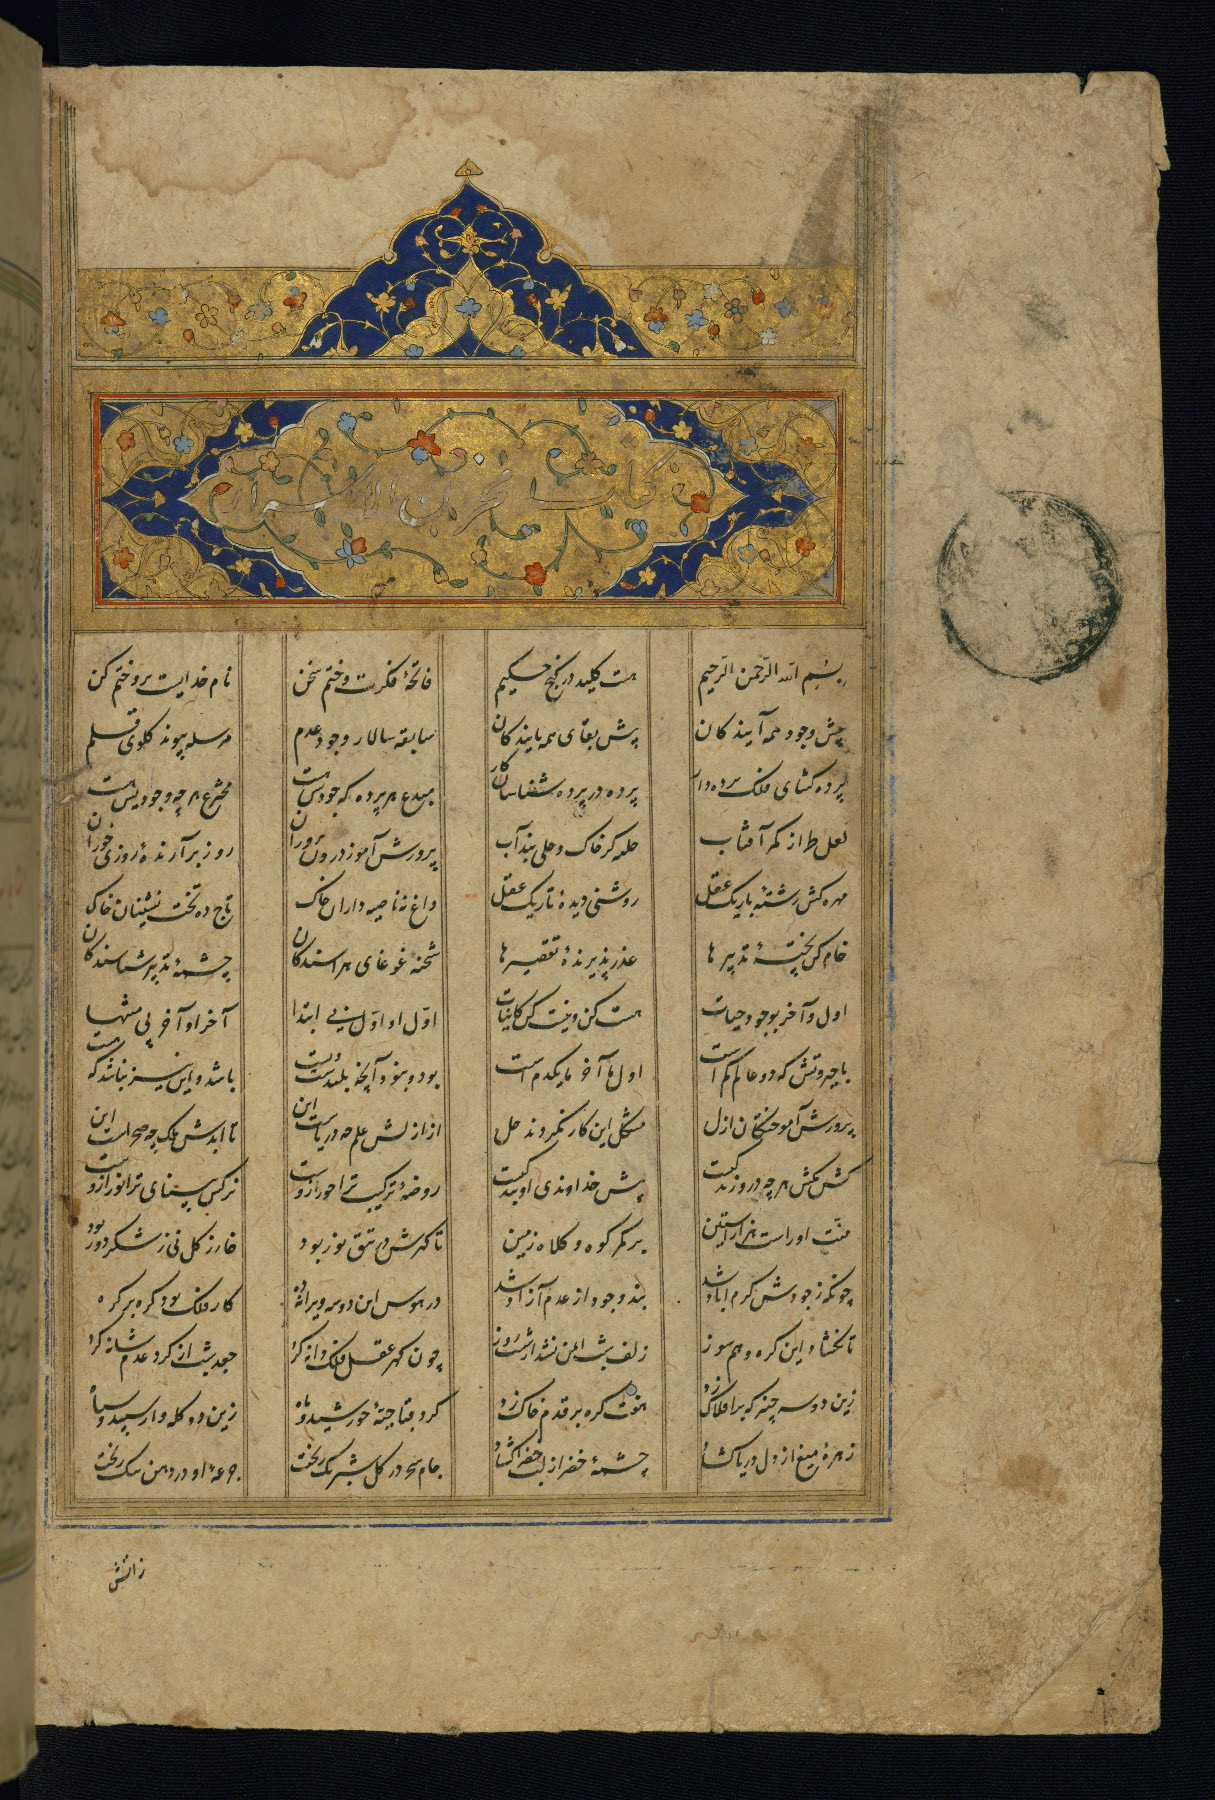 کتاب مخزن الاسرار
بسم الله الرّحمن الرّحیم هست کلید در گنج حکیم فاتحهٔ فکرت و ختم سخن نام خدایست برو ختم کن
پیش وجود همه آیندکان پیش بقای همه پایندکان سابقه سالار وجود و عدم مرسله پیوند کلوی قلم
پرده کشای فلک پرده دار پرده در پرده شناسان کار مبدع هر پرده که جودیش هست مخترع هر چه وجودیش هست
لعل طراز کمر آفتاب حله کر خاک و حلی بند آب پرورش آموز درون پروران روز برآرندهٔ روزی خوران
مهره کش رشتهٔ باریک عقل روشنی دیدهٔ تاریک عقل داغ نه ناصیه داران خاک تاج ده تخت نشینان خاک
خام کن پختهٔ تدبیرها عذر پذیرندهٔ تقصیرها شحنهٔ غوغای هراسندکان چشمهٔ تدبیر شناسندکان
اول و آخر بوجود و حیات هست کن و نیست کن کاینات اوّل او اوّل بی ابتدا آخر او آخر بی منتها
با جبروتش که دو عالم کم است اول ما آخر ما یکدم است بود و نبود آنچه بلندست و پست باشد و این نیز نباشد که هست
پرورش آموختکان ازل مشکل این کار نکردند حل از ازلش علم چه دریاست این تا ابدش ملک چه صحراست این
کش مکش هر چه درو زندکیست پیش خداوندی او بندکیست روضهٔ ترکیب ترا حور ازوست نرکس بینای ترا نور ازوست
منّت او راست هزار آستین بر کمر کوه و کلاه زمین تا کرمش در تتق نور بود خار ز کل نی ز شکر دور بود
چونکه ز جودش کرم آباد شد بند وجود از عدم آزاد شد در هوس این دو سه ویرانه ده کار فلک بود کره بر کره
تا نکشاد این کره وهم سوز زلف شب ایمن نشد از دست روز چون کهر عقد فلک دانه کرد جعد شب از کرد عدم شانه کرد
زین دو سه چنبر که بر افلاک زد هفت کره بر قدم خاک زد کرد قبا جبهٔ خورشید و ماه زین دو کله وار سپید و سیاه
زهرهٔ میغ از دل دریا کشاد چشمهٔ خضر از لب خضرا کشاد جام سحر در کل شبرنک ریخت جرعهٔ او در دهن سنک ریخت
زاتش